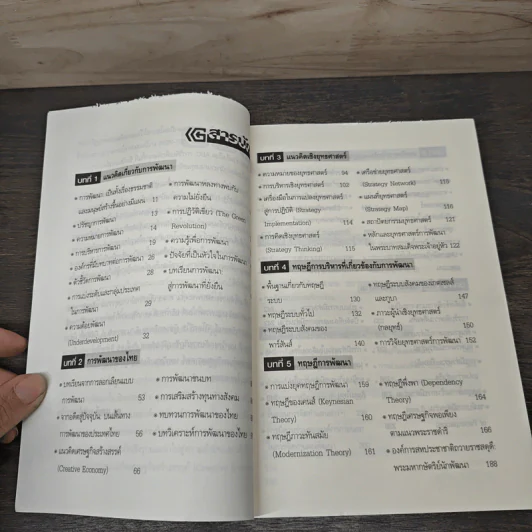 สารบัญ
บทที่ 1 แนวคิดเกี่ยวกับการพัฒนา
• การพัฒนา เป็นทั้งเรื่องธรรมชาติ
และมนุษย์สร้างขึ้นอย่างมีแผน 11
• ปรัชญาการพัฒนา 13
• ความหมายการพัฒนา 14
• การบริหารการพัฒนา 19
• องค์การที่มีบทบาทต่อการพัฒนา 26
• ตัวชี้วัดการพัฒนา 28
• การแบ่งระดับและกลุ่มประเทศ
ในการพัฒนา 29
• ความด้อยพัฒนา
(Underdevelopment) 32
• การพัฒนาหลงทางพบกับ
ความไม่ยั่งยืน
• การปฏิวัติเขียว (The Green
Revolution)
• ความรู้เพื่อการพัฒนา
• ปัจจัยที่เป็นหัวใจในการพัฒนา
• บทเรียนการพัฒนา
สู่การพัฒนาที่ยั่งยืน
บทที่ 2 การพัฒนาของไทย
• บทเรียนจากการลอกเลียนแบบ
การพัฒนา 53
• จากอดีตสู่ปัจจุบัน: บนเส้นทาง
การพัฒนาของประเทศไทย 56
• แนวคิดเศรษฐกิจสร้างสรรค์
(Creative Economy) 66
• การพัฒนาชนบท
• การเสริมสร้างทุนทางสังคม
• ทบทวนการพัฒนาของไทย
• บทวิเคราะห์การพัฒนาของไทย
บทที่ 3 แนวคิดเชิงยุทธศาสตร์
• ความหมายของยุทธศาสตร์ 94
• การบริหารเชิงยุทธศาสตร์ 103
• เครื่องมือในการแปลงยุทธศาสตร์
สู่การปฏิบัติ (Strategy
Implementation) 114
• การคิดเชิงยุทธศาสตร์
(Strategy Thinking) 115
• เครือข่ายยุทธศาสตร์
(Strategy Network) 119
• แผนที่ยุทธศาสตร์
(Strategy Map)
• สถาปัตยกรรมยุทธศาสตร์ 121
• หลักและยุทธศาสตร์การพัฒนา
ในพระบาทสมเด็จพระเจ้าอยู่หัว 122
บทที่ 4 ทฤษฎีการบริหารที่เกี่ยวข้องกับการพัฒนา
• พื้นฐานเกี่ยวกับทฤษฎี
ระบบ 130
• ทฤษฎีระบบทั่วไป 132
• ทฤษฎีระบบสังคมของ
พาร์สันส์ 140
• ทฤษฎีระบบสังคมของเกตเซลส์
และกูบา 147
• ภาวะผู้นำเชิงยุทธศาสตร์
(กลยุทธ์) 150
• การวิจัยยุทธศาสตร์การพัฒนา 152
บทที่ 5 ทฤษฎีการพัฒนา
• การแบ่งยุคทฤษฎีการพัฒนา 159
• ทฤษฎีของเคนส์ (Keynesian
Theory) 160
• ทฤษฎีภาวะทันสมัย
(Modernization Theory) 161
• ทฤษฎีพึ่งพา (Dependency
Theory) 164
• ทฤษฎีเศรษฐกิจพอเพียง
ตามแนวพระราชดำริ 166
• องค์การสหประชาชาติถวายราชสดุดี:
พระมหากษัตริย์นักพัฒนา 188